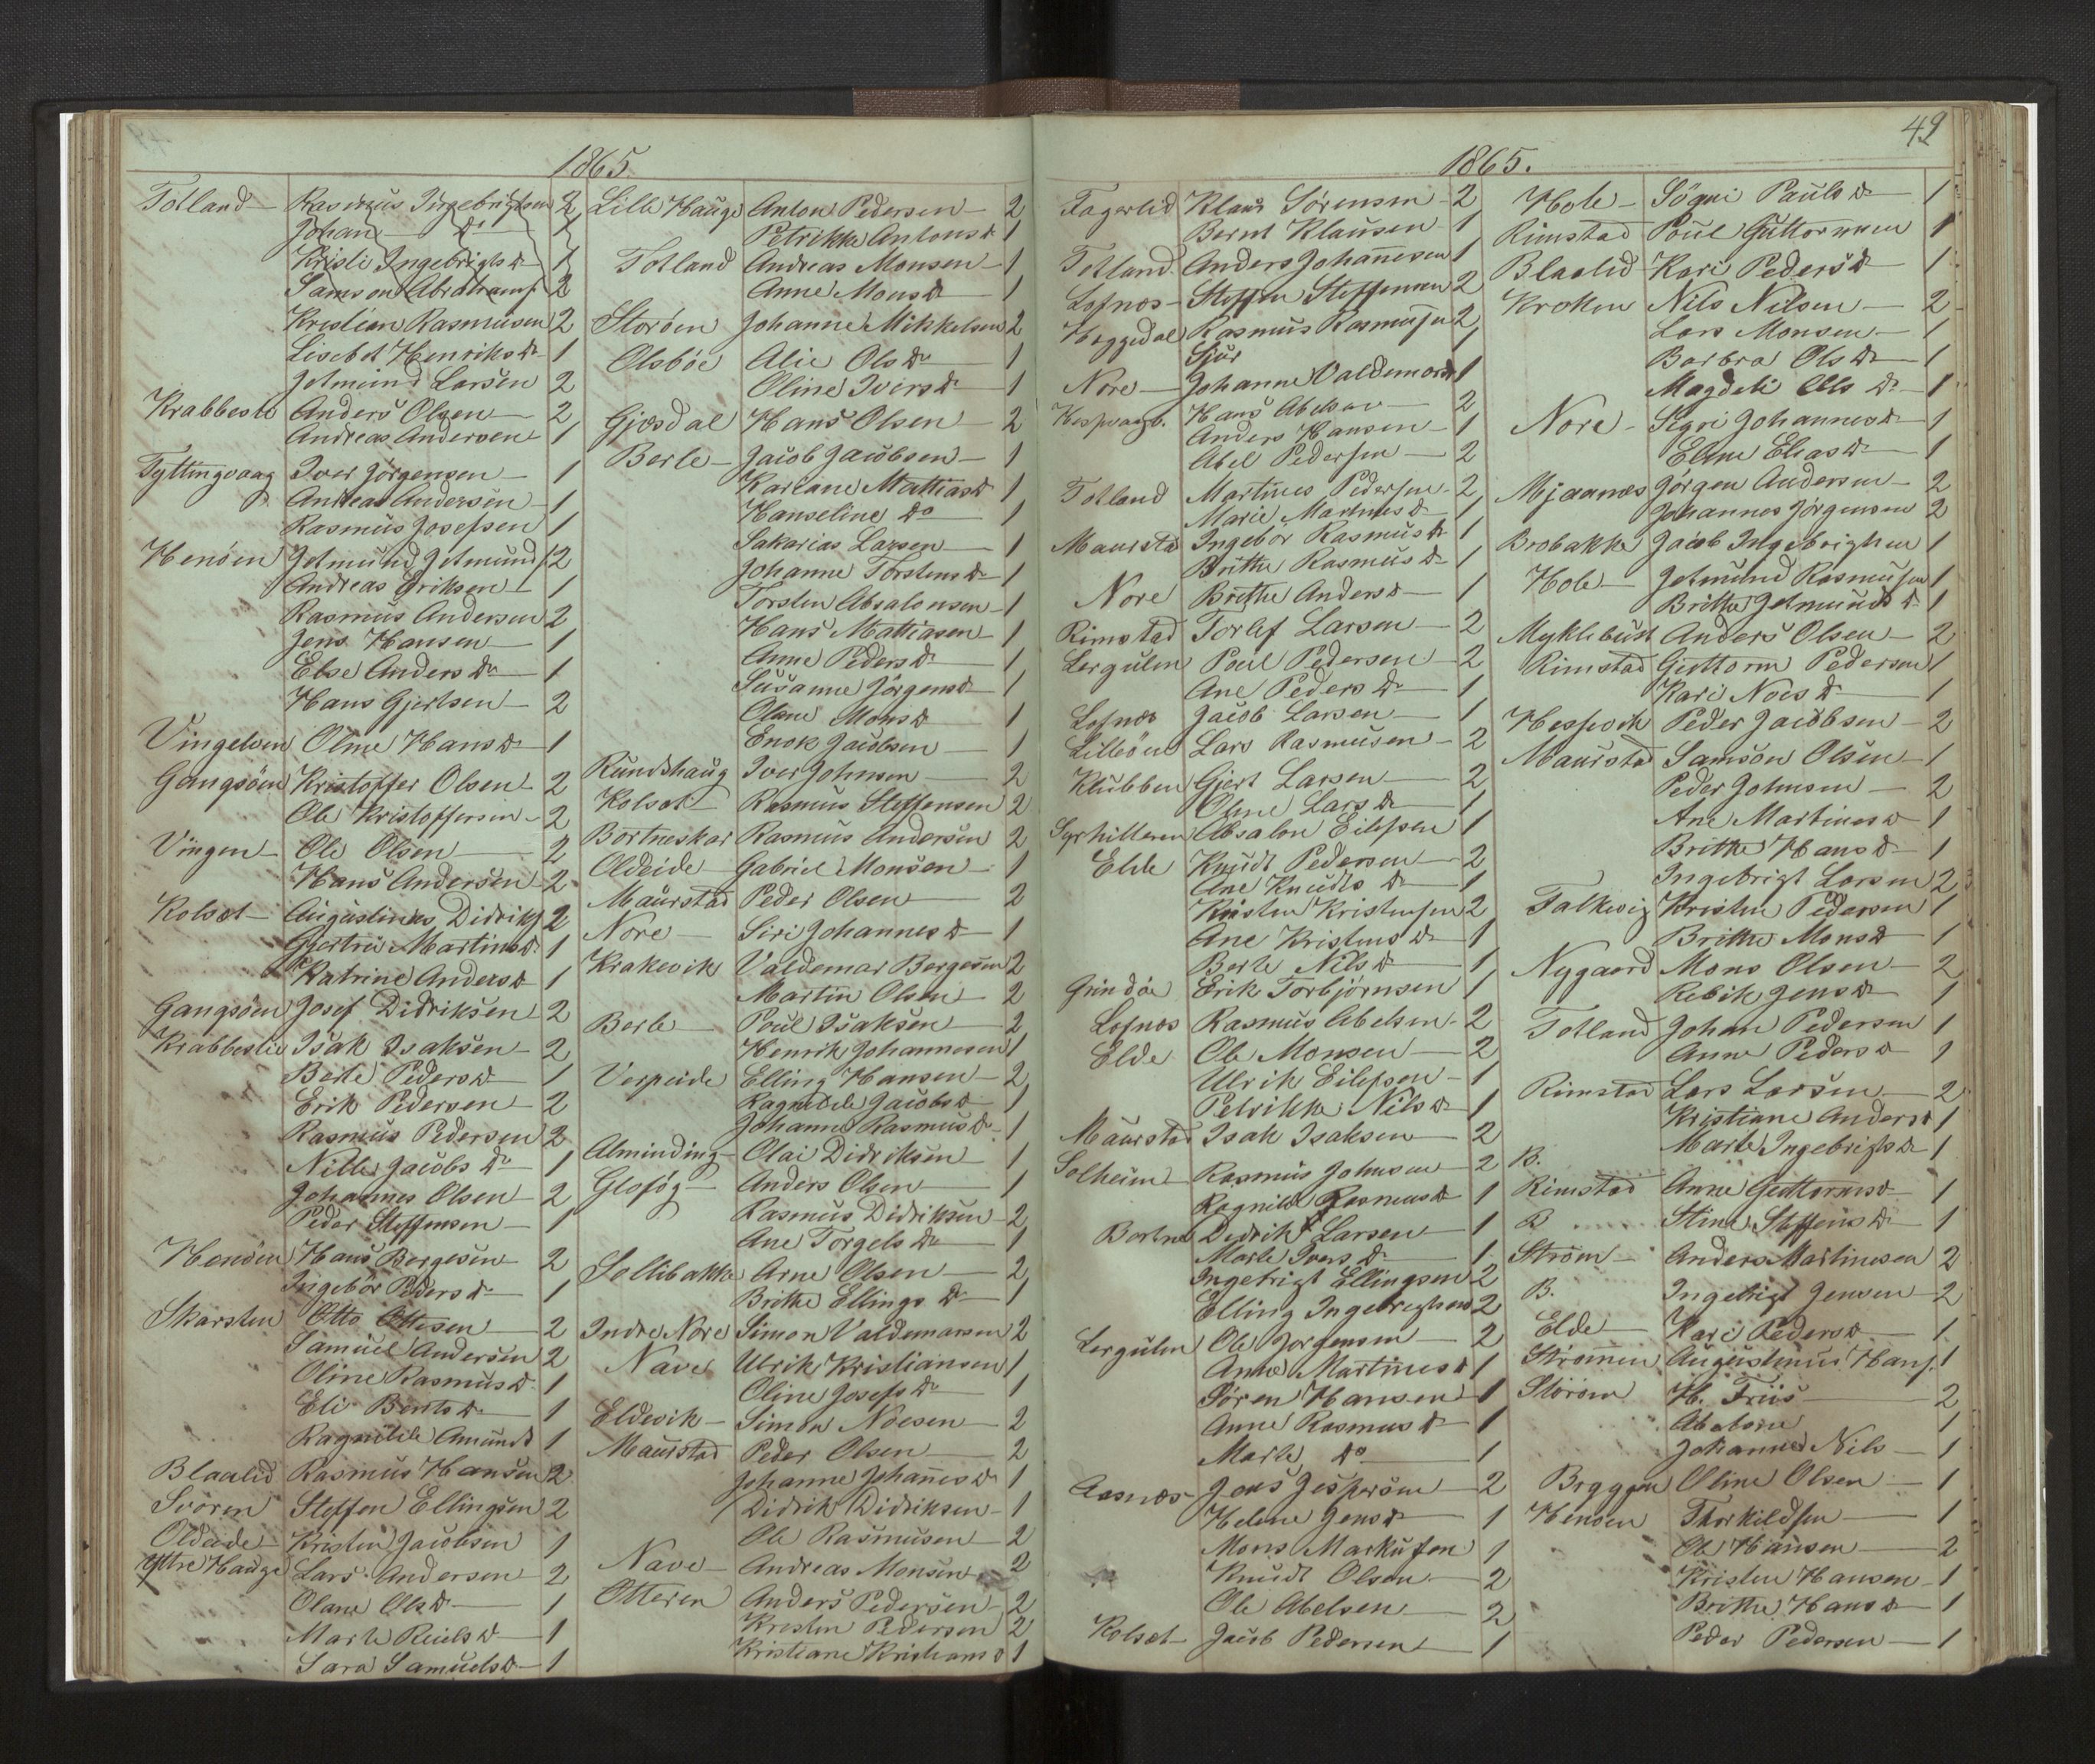 1865
Totland Rasmus Ingebrigtsen 2
Johan do 1
Kristi Ingebrigtsd 1
Samson Abrahams 2
Kristian Rasmusen 2
Lisebet Henriksdr 1
Jetmund Larsen 2
Krabbesti Anders Olsen 2
Andreas Andersen 1
Tytlingvaag Iver Jörgensen 1
Andreas Andersen 1
Rasmus Josefsen 1
Henöen Jetmund Jetmunds 2
Andreas Eriksen 1
Rasmus Andersen 2
Jens Hansen 1
Else Andersdr 1
Hans Gjertsen 2
Vingelven Oline Hansdr 1
Gangsöen Kristoffer Olsen 2
Ole Kristoffersen 2
Vingen Ole Olsen 2
Hans Andersen 2
Kolset Augustinus Didriks 2
Gjertrü Martinusdr 1
Katrine Andersdr 1
Gangsöen Josef Didriksen 2
Krabbestie Isak Isaksen 2
Berte Pedersdr 1
Erik Pedersen 2
Rasmus Pedersen 2
Nille Jacobsdr 1
Johannes Olsen 2
Peder Steffensen 1
Henöen Hans Børgesen 2
Ingebör Pedersdr 1
Skarsten Otto Ottesen 2
Samuel Andersen 2
Oline Rasmusdr 1
Eli Berntsdr 1
Ragnilde Amunds 1
Blaalid Rasmus Hansen 2
Svören Steffen Ellingsen 2
Oldeide Kristen Jacobsen 1
Yttre Hauge Lars Andersen 2
Olane Olsdr 1
Marte Reielsdr 1
Sara Samuelsdr 1
Lille Hauge Anton Pedersen 2
Petrikke Antonsdr 1
Totland Andreas Monsen 1
Anne Monsdr 1
Storöen Johanne Mikkelsen 2
Olsböe Alie Olsdr 1
Oline Iversdr 1
Gjesdal Hans Olsen 2
Berle Jacob Jacobsen 1
Kariane Mattiasdr 1
Hanseline do 1
Sakarias Larsen 1
Johanne Torstensdr 1
Torsten Absalonsen 1
Hans Mattiasen 1
Anne Pedersdr 1
Susanne Jörgensdr 1
Olane Monsdr 1
Enok Jacobsen 1
Rundshaug Iver Johnsen 2
Kolset Rasmus Steffensen 2
Bortneskar Rasmus Andersen 2
Oldeide Gabriel Monsen 1
Maurstad Peder Olsen 2
Nore Siri Johannesdr 1
Krakevik Valdemar Børgesen 2
Martin Olsen 2
Berle Poul Isaksen 2
Henrik Johannesen 1
Verpeide Elling Hansen 2
Ragnilde Jacobsdr 1
Johanne Rasmusdr 1
Alminding Olai Didriksen 1
Glofög Anders Olsen 1
Rasmus Didriksen 2
Ane Torgelsdr 1
Sellibakke Arne Olsen 2
Brithe Ellingsdr 1
Indre Nore Simon Valdemarsen 2
Nave Ulrik Kristiansen 1
Oline Josefsdr 1
Eldevik Simon Noesen 2
Maurstad Peder Olsen 2
Johanne Johannesdr 1
Didrik Didriksen 1
Ole Rasmusen 2
Nave Andreas Monsen 2
Otteren Anders Pedersen 2
Kresten Pedersen 2
Kristiane Kristiansd 1
49
1865.
Fagerlid Klaus Sørensen 2
Bernt Klausen 1
Totland Anders Johannesen 1
Lofnes Steffen Steffensen 2
Heggedal Rasmus Rasmusen 2
Siur 1
Nore Johanne Valdemarsd 1
Hespvaag Hans Abelsen 2
Anders Hansen 1
Abel Pedersen 2
Totland Martines Pedersen 2
Marie Martinesdr 1
Maurstd Ingebör Rasmusdr 1
Brithe Rasmusdr 1
Nore Brithe Andersdr 1
Rimstad Torlef Larsen 2
Lergulen Poul Pedersen 2
Ane Pedersdr 1
Lofnes Jacob Larsen 1
Lilleöen Lars Rasmusen 2
Klubben Gjert Larsen 2
Oline Larsdr 1
Syrhilleren Absalon Eilefsen 1
Elde Knudt Pedersen 2
Ane Knudtsdr 1
Kristen Kristensen 2
Ane Kristensdr 1
Berte Nilsdr 1
Grindöe Erik Torbjørnsen 1
Lofnes Rasmus Abelsen 2
Elde Ole Monsen 2
Ulrik Eilefsen 1
Petrikke Nilsdr 1
Maurstad Isak Isaksen 2
Solheim Rasmus Johnsen 2
Ragnild Rasmusdr 1
Bortne Didrik Larsen 1
Marte Iversdr 1
Ingebrigt Ellingsen 2
Elling Ingebrigtsen 2
Lergulen Ole Jørgensen 2
Anne Martinesdr 1
Søren Hansen 1
Anne Rasmusdr 1
Marte do 1
Aasnes Jens Jespersen 2
Helene Jensdr 1
Mons Markusen 1
Knudt Olsen 2
Ole Abelsen 2
Kolset Jacob Pedersen 1
Hole Sögni Paulsdr 1
Rimstad Poul Guttormsen 1
Blaalid Kari Pedersdr 1
Kroken Nils Nilsen 2
Lars Monsen 1
Barbra Olsdr 1
Magdeli Olsdr 1
Nore Sigri Johannesdr 1
Eline Eliasdr 1
Mjaanes Jørgen Andersen 2
Johannes Jørgensen 2
Brobakke Jacob Ingebrigtsen 1
Hole Jetmund Rasmusen 1
Brithe Jetmundsdr 1
Myklebust Anders Olsen 2
Rimstad Guttorm Pedersen 1
Kari Noesdr 1
Hespvik Peder Jacobsen 2
Maurstad Samson Olsen 1
Peder Johnsen 2
Ane Martinesdr 1
Brithe Hansdr 1
Ingebrigt Larsen 2
Falkevig Kristen Pedersen 1
Brithe Monsdr 1
Nygaard Mons Olsen 2
Rebik Jensdr 1
Totland Johan Pedersen 1
Anne Pedersdr 1
Rimstad Lars Larsen 2
Kristiane Andersdr 1
B. Marte Ingebrigtsdr 1
Rimstad Anne Guttormsdr 1
B Stine Steffensdr 1
Strøm Anders Martinesen 2
B. Ingebrigt Jensen 2
Elde Kari Pedersdr 1
Strömen Augustinus Hans. 1
Störöen H. Friis 2
Abelone 1
Johanne Nils 1
Bryggen Oline Olsen 1
Henöen Thorkildsen 1
Ole Hansen 2
Kristen Hansen 1
Brithe Hansdr 1
Peder Pedersen 1